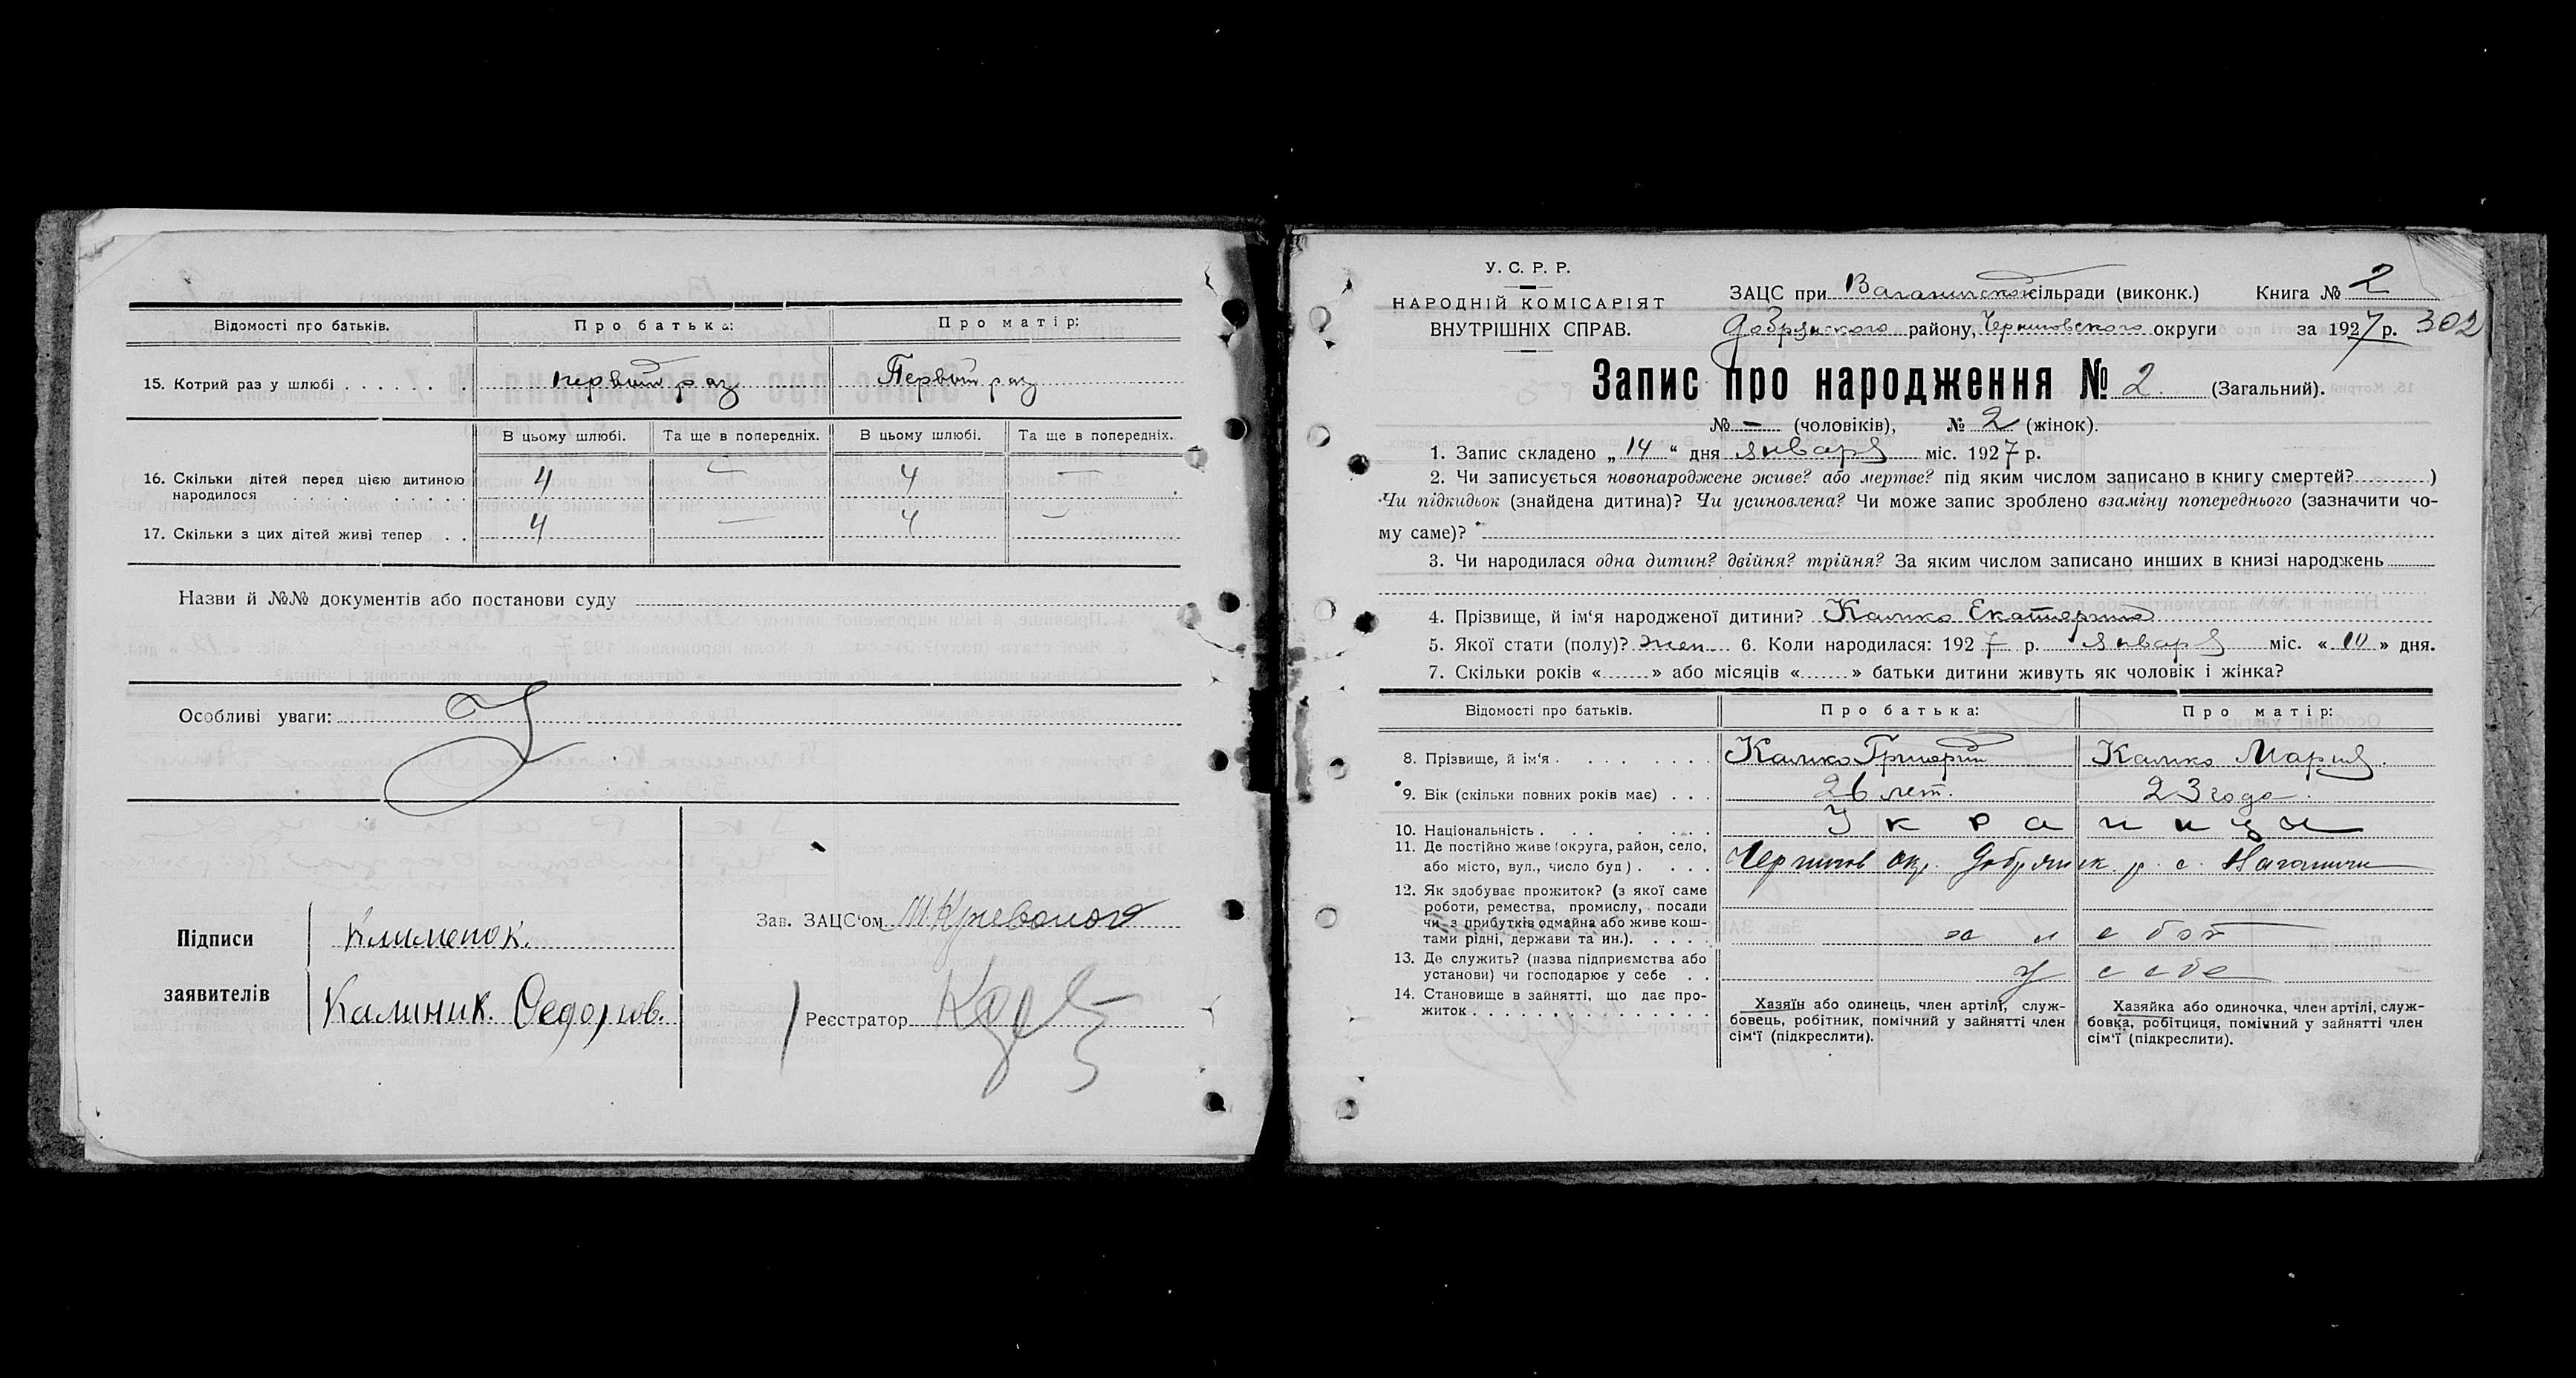 Відомості про батьків. Про батька: Про матір:
15. Котрий раз у шлюбі первый раз Первый раз
В цьому шлюбі. Та ще в попередніх. В цьому шлюбі. Та ще в попередніх.
16. Скільки дітей перед цією дитиною 4 — 4 —
народилося
17. Скільки з цих дітей живі тепер 4 — 4 —
Назви й №№ документів або постанови суду
Особливі уваги:
Підписи Клименок.
заявителів Калиник.
Зав. ЗАЦС‘ом
Реєстратор
У. С. Р. Р.
НАРОДНІЙ КОМІСАРІЯТ
ВНУТРІШНІХ СПРАВ.
ЗАЦС при сільради (виконк.) Книга № 2
Добрянского району, Черниговского округи за 1927 р. 302
Запис про народження № 2. (Загальний).
№ — (чоловіків), № 2 (жінок).
1. Запис складено „ 14 “ дня января міс. 1927 р.
2. Чи записується новонароджене живе? або мертве? під яким числом записано в книгу смертей? )
Чи підкидьок (знайдена дитина)? Чи усиновлена? Чи може запис зроблено взаміну попереднього (зазначити чо-
му саме)?
3. Чи народилася одна дитин? двійня? трійня? За яким числом записано инших в книзі народжень
4. Прізвище, й ім‘я народженої дитини? Екатерина
5. Якої стати (полу)? жен 6. Коли народилася: 1927 р. января міс. « 10 » дня.
7. Скільки років « » або місяців « » батьки дитини живуть як чоловік і жінка?
Відомості про батьків. Про батька: Про матір:
8. Прізвище, й ім‘я Григорий Мария.
9. Вік (скільки повних років має) 26 лет. 23 года.
10. Національність Украинцы
11. Де постійно живе (округа, район, село,
або місто, вул., число буд) Чернигов окр. Добрянск р. с.
12. Як здобуває прожиток? (з якої саме
роботи, ремества, промислу, посади
чи з прибутків одмайна або живе кош-
тами рідні, держави та ин.).
13. Де служить? (назва підприємства або
установи) чи господарює у себе у себе
14. Становище в зайнятті, що дає про-
житок
Хазяїн або одинець, член артілі, служ-
бовець, робітник, помічний у зайнятті член
сім‘ї (підкреслити).
Хазяйка або одиночка, член артілі, служ-
бовка, робітциця, помічний у зайнятті член
сім‘ї (підкреслити).